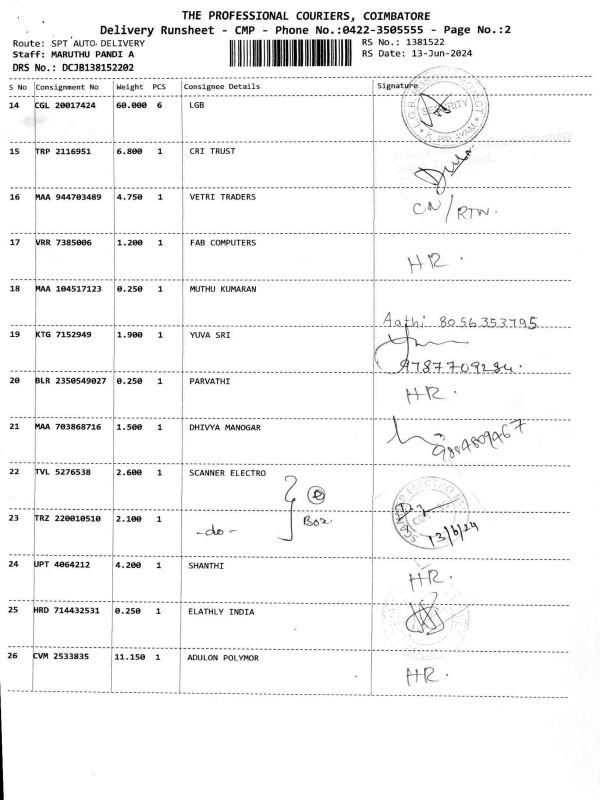 THE PROFESSIONAL COURIERS, COIMBATORE
Delivery Runsheet - CMP - Phone No.:0422-3505555 - Page No.:2
Route: SPT AUTO DELIVERY
RS No.: 1381522
Staff: MARUTHU PANDI A
RS Date: 13-Jun-2024
DRS No.: DCJB138152202
S No Consignment No Weight PCS Consignee Details Signature
14 CGL 20017424 60.000 6 LGB
SECURITY
15 TRP 2116951 6.800 1 CRI TRUST
16 MAA 944703489 4.750 1 VETRI TRADERS CN/RTN.
17 VRR 7385006 1.200 1 FAB COMPUTERS HR.
18 MAA 104517123 0.250 1 MUTHU KUMARAN
Aathi 8056353795
19 KTG 7152949 1.900 1 YUVA SRI
9787709284.
20 BLR 2350549027 0.250 1 PARVATHI HR.
21 MAA 703868716 1.500 1 DHIVYA MANOGAR
22 TVL 5276538 2.600 1 SCANNER ELECTRO
Box
23 TRZ 220010510 2.100 1 -do- 13/6/24
24 UPT 4064212 4.200 1 SHANTHI HR.
25 HRD 714432531 0.250 1 ELATHLY INDIA
26 CVM 2533835 11.150 1 ADULON POLYMOR HR.